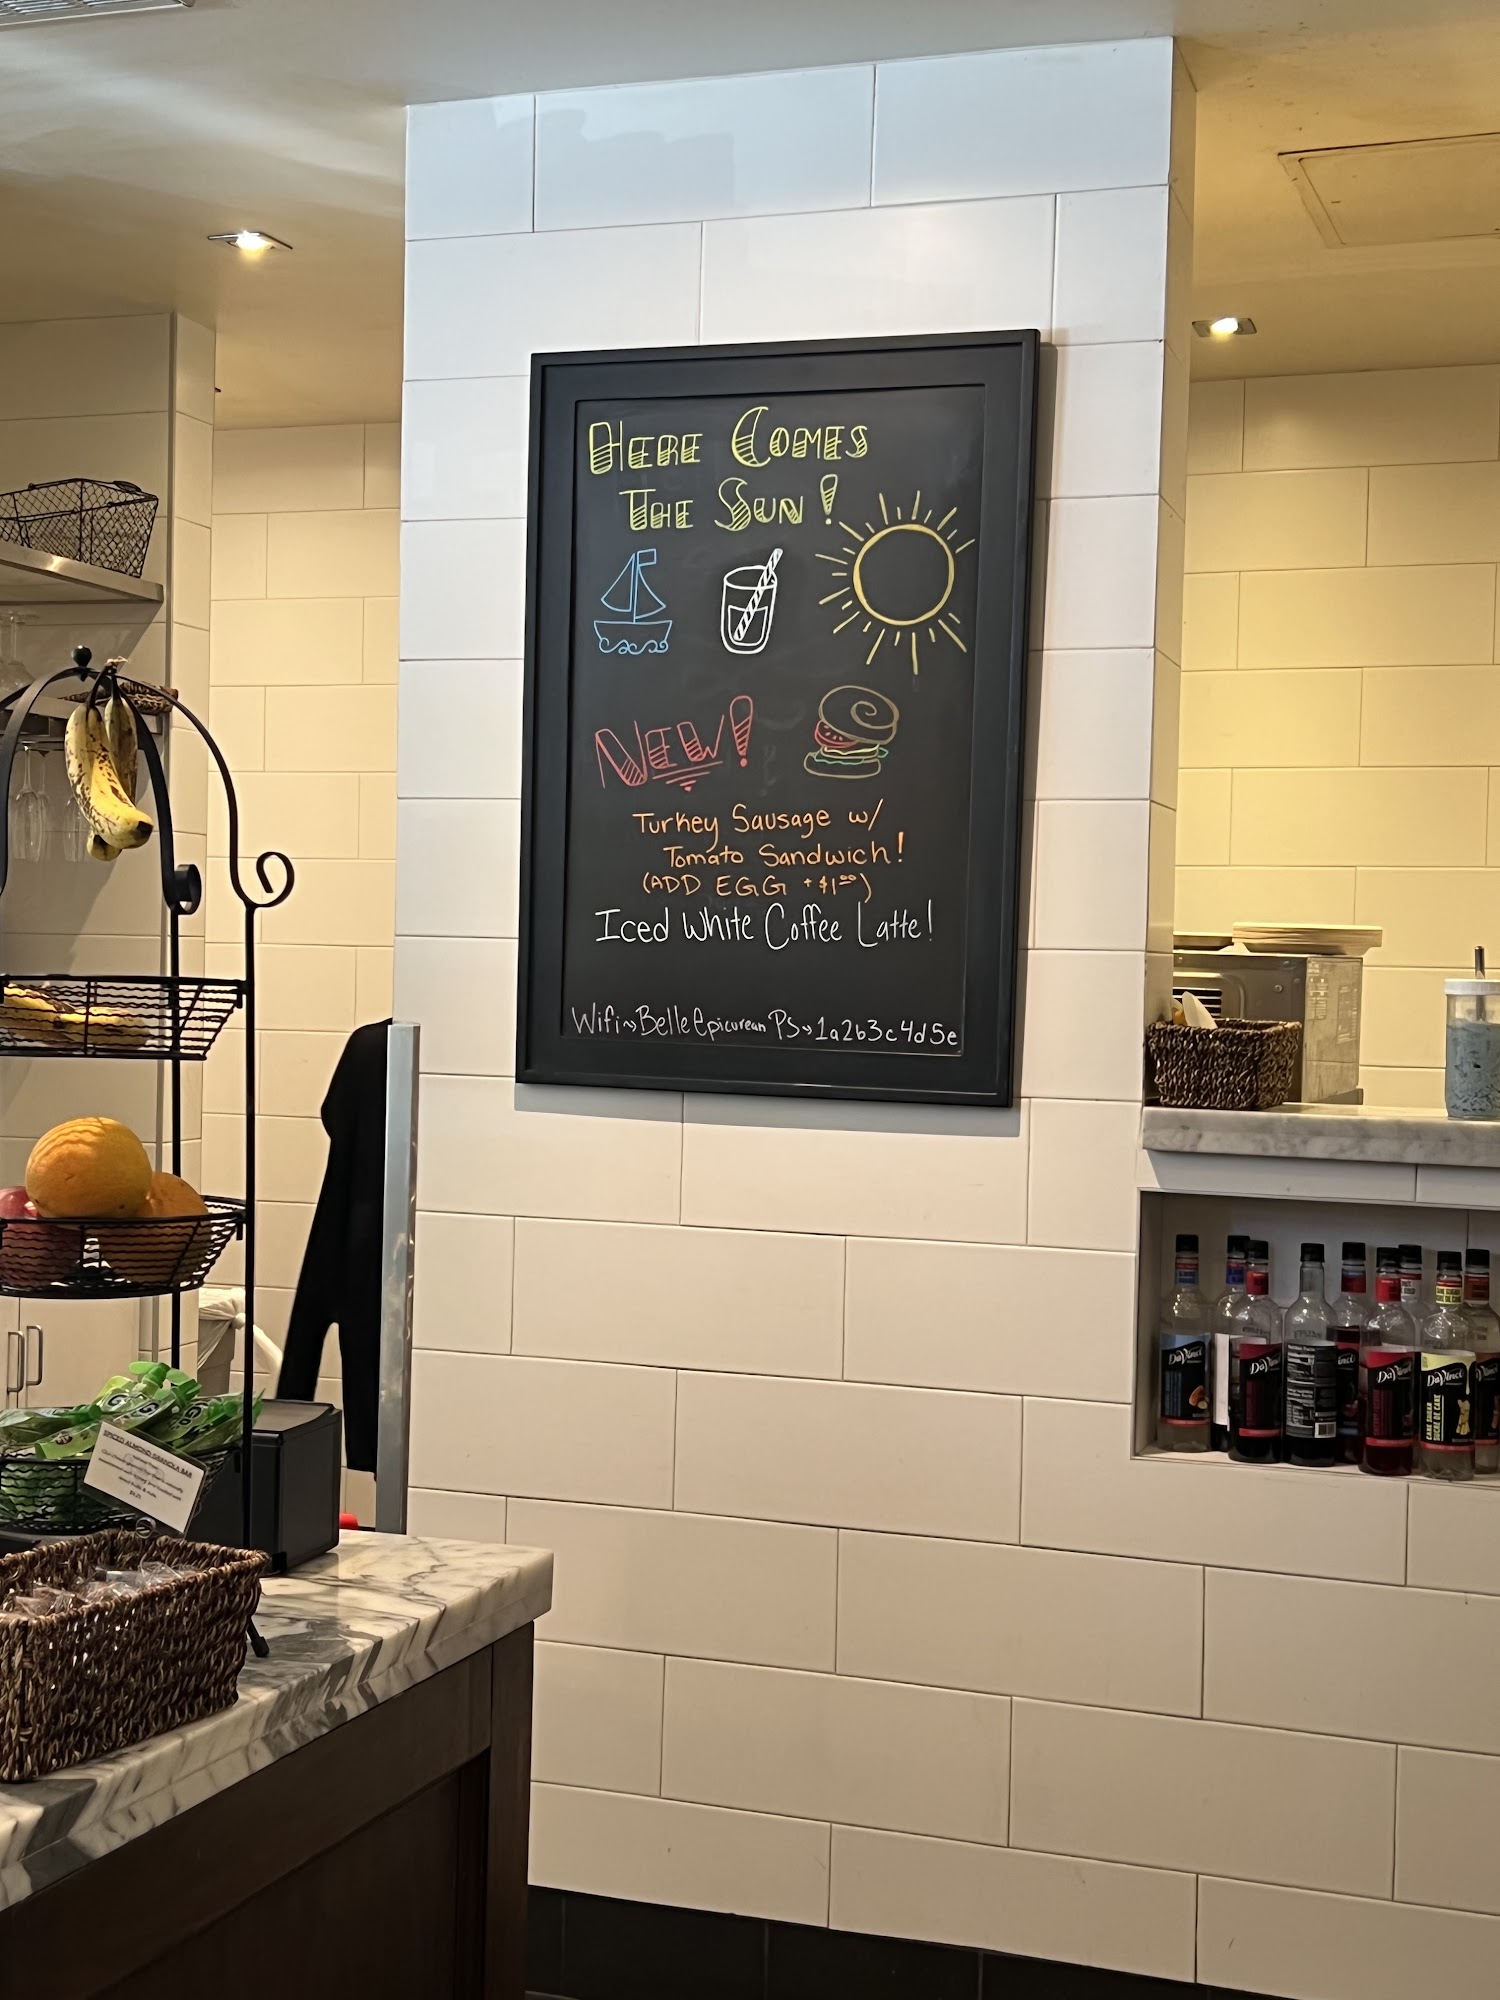 HERE COMES
THE SUN!
NEW!
Turkey Sausage w/
Tomato Sandwich!
(ADD EGG +$1⁰⁰)
Iced White Coffee Latte!
Wifi~>BelleEpicurean PS~>1a2b3c4d5e
SPICED ALMOND GRANOLA BAR
DaVinci
DaVinci
DaVinci
DaVinci
CANE SUGAR
SUCRE DE CANE